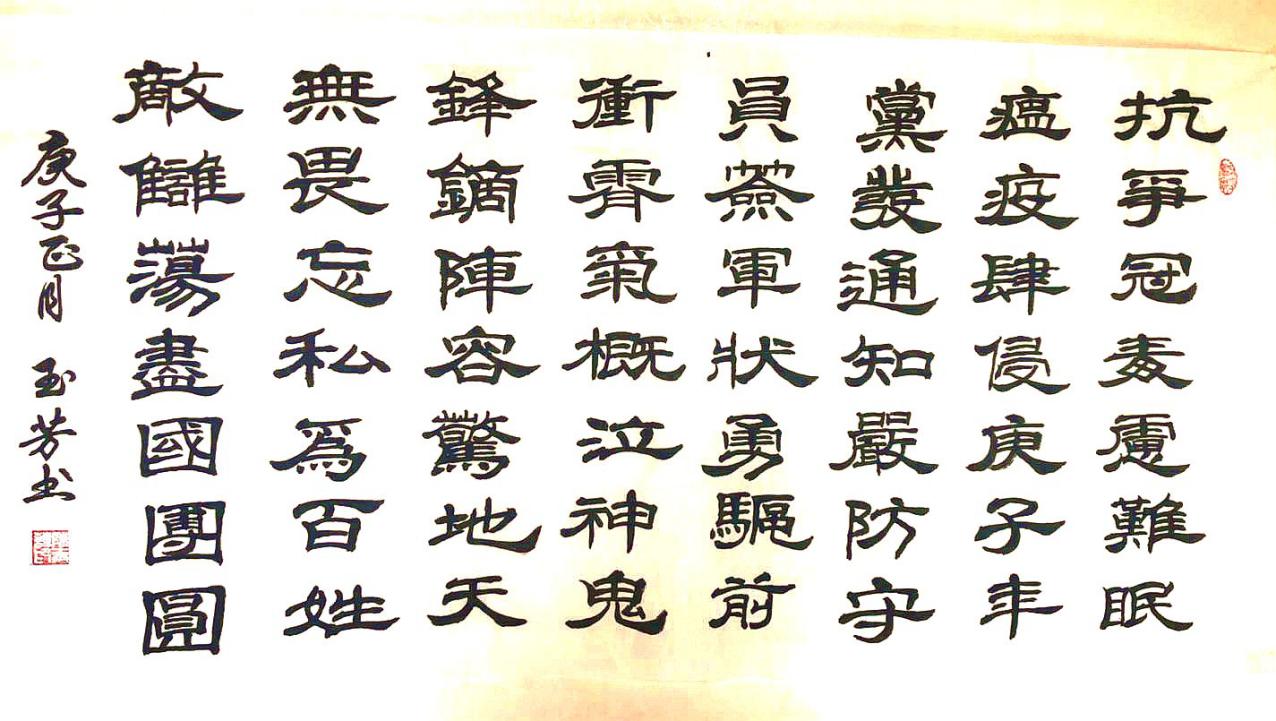 抗爭冠毒慮難眠
瘟疫肆侵庚子年
黨發通知嚴防守
員簽軍狀勇驅前
衝霄氣概泣神鬼
鋒鏑陣容驚地天
無畏忘私爲百姓
敵讎蕩盡國團圓
庚子正月 玉芳书